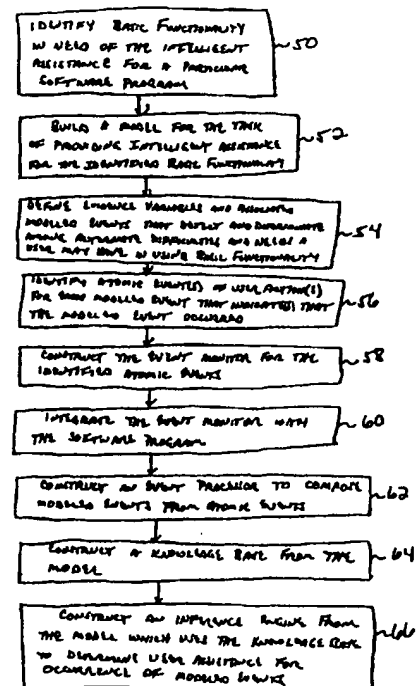 IDENTIFY BASIC FUNCTIONALITY
IN NEED OF THE INTELLIGENT
ASSISTANCE FOR A PARTICULAR
SOFTWARE PROGRAM
50
BUILD A MODEL FOR THE TASK
OF PROVIDING INTELLIGENT ASSISTANCE
FOR THE IDENTIFIED BASIC FUNCTIONALITY
52
DEFINE EVIDENCE VARIABLES AND ASSOCIATED
MODELED EVENTS THAT DETECT AND DISCRIMINATE
AMONG ALTERNATE DIFFICULTIES AND NEEDS A
USER MAY HAVE IN USING BASIC FUNCTIONALITY
54
IDENTIFY ATOMIC EVENT(S) OR USER ACTION(S)
FOR EACH MODELED EVENT THAT INDICATE(S) THAT
THE MODELED EVENT OCCURRED
56
CONSTRUCT THE EVENT MONITOR FOR THE
IDENTIFIED ATOMIC EVENTS
58
INTEGRATE THE EVENT MONITOR WITH
THE SOFTWARE PROGRAM
60
CONSTRUCT AN EVENT PROCESSOR TO COMPOSE
MODELED EVENTS FROM ATOMIC EVENTS
62
CONSTRUCT A KNOWLEDGE BASE FROM THE
MODEL
64
CONSTRUCT AN INFERENCE ENGINE FROM
THE MODEL WHICH USES THE KNOWLEDGE BASE
TO DETERMINE USER ASSISTANCE FOR
OCCURRENCE OF MODELED EVENTS
66